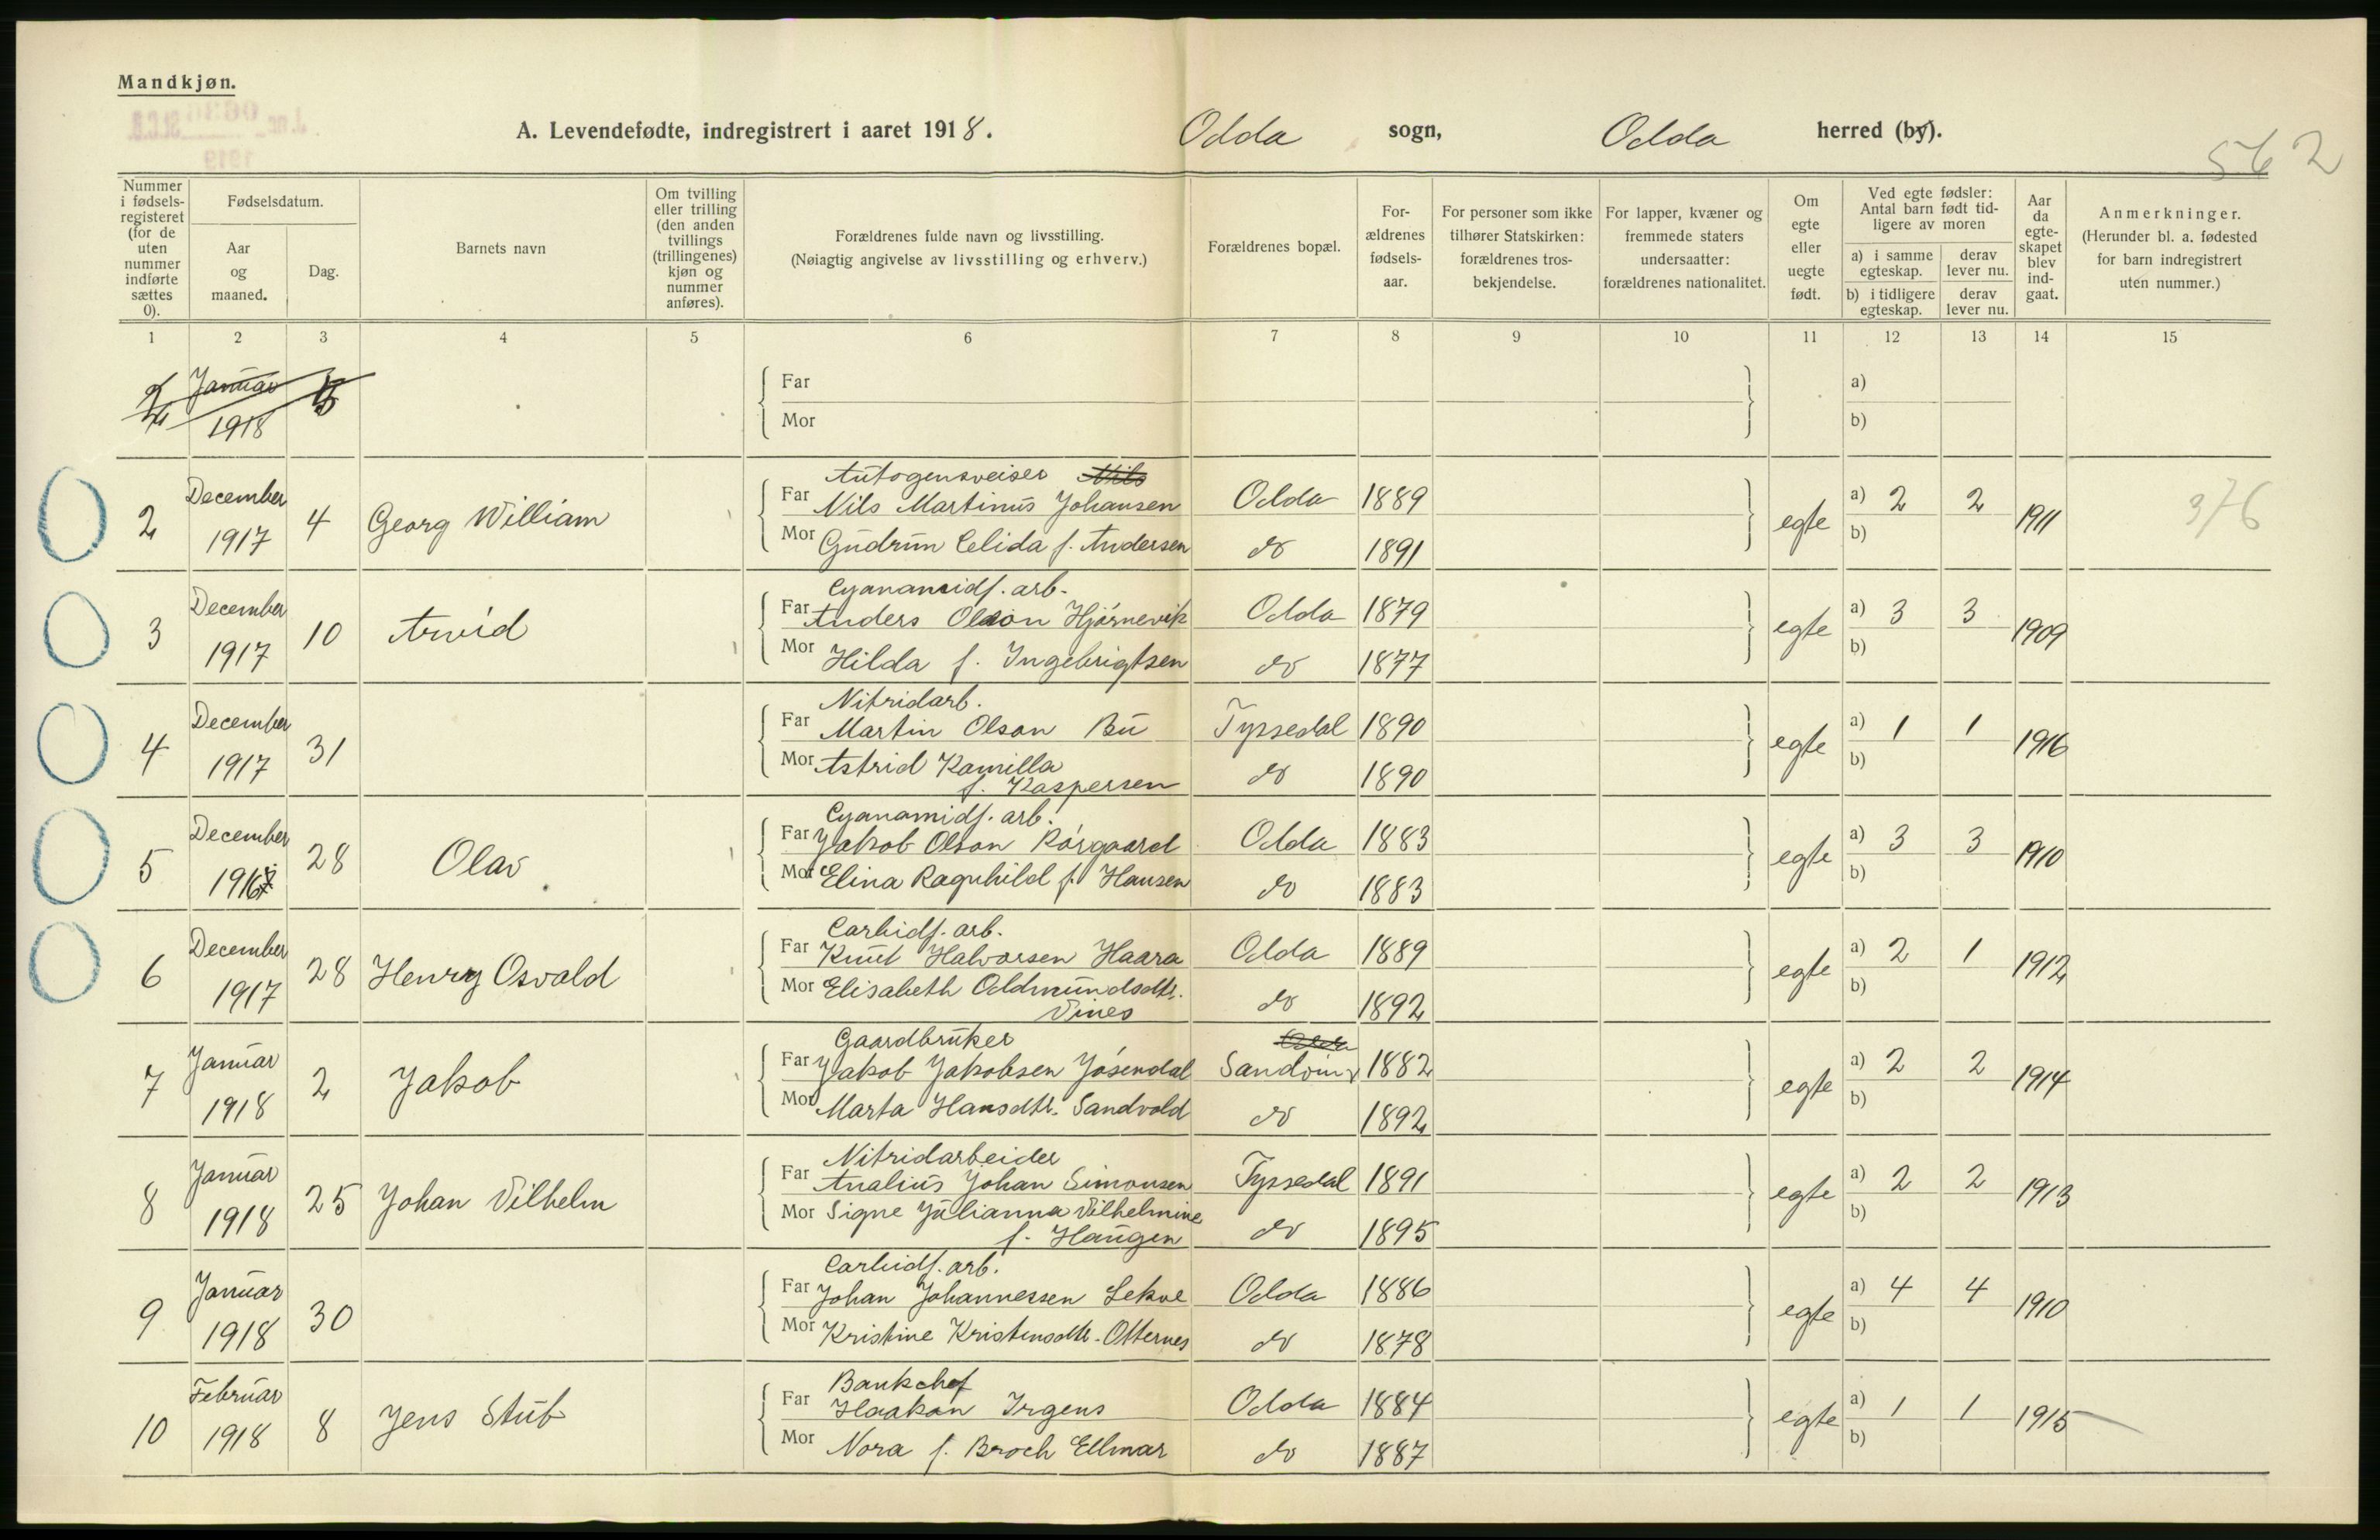 Mandkjøn.
A. Levendefødte, indregistrert i aaret 1918. Odda sogn, Odda herred (by).
562
Nummer i fødsels-registeret (for de uten nummer indførte sættes 0).
Fødselsdatum.
Aar og maaned.
Dag.
Barnets navn
Om tvilling eller trilling (den anden tvillings (trillingenes) kjøn og nummer anføres).
Forældrenes fulde navn og livsstilling.
(Nøiagtig angivelse av livsstilling og erhverv.)
Forældrenes bopæl.
For-ældrenes fødsels-aar.
For personer som ikke tilhører Statskirken: forældrenes tros-bekjendelse.
For lapper, kvæner og fremmede staters undersaatter: forældrenes nationalitet.
Om egte eller uegte født.
Ved egte fødsler: Antal barn født tid-ligere av moren
a) i samme egteskap.
derav lever nu.
b) i tidligere egteskap.
derav lever nu.
Aar da egte-skapet blev ind-gaat.
Anmerkninger.
(Herunder bl. a. fødested for barn indregistrert uten nummer.)
1 2 3 4 5 6 7 8 9 10 11 12 13 14 15
Januar
1918
Far a)
Mor b)
Autogensveiser Nils
2 December 1917 4 Georg William Far Nils Martinus Johansen Odda 1889 egte a) 2 2 1911 376
Mor Gudrun Elida f. Andersen do 1891 b)
Cyanamidf. arb.
3 December 1917 10 Arvid Far Anders Olson Hjørnevik Odda 1879 egte a) 3 3 1909
Mor Hilda f. Ingebrigtsen do 1877 b)
Nitridarb.
4 December 1917 31 Far Martin Olson Bu Tyssedal 1890 egte a) 1 1 1916
Mor Astrid Kamilla do 1890 b)
f. Kaspersen
Cyanamidf. arb.
5 December 28 Olav Far Jakob Olson Rørgaard Odda 1883 egte a) 3 3 1910
Mor Elina Ragnhild f. Hansen do 1883 b)
Carbidf. arb.
6 December 1917 28 Henry Osvald Far Knut Halvorsen Haara Odda 1889 egte a) 2 1 1912
Mor Elisabeth Oddmundsdtr. do 1892 b)
Vines
Gaardbruker
7 Januar 1918 2 Jakob Far Jakob Jakobsen Jøsendal Sandvin 1882 egte a) 2 2 1914
Mor Marta Hansdtr. Sandvold do 1892 b)
Nitridarbeider
8 Januar 1918 25 Johan Vilhelm Far Analius Johan Simonsen Tyssedal 1891 egte a) 2 2 1913
Mor Signe Julianna Vilhelmine do 1895 b)
f. Haugen
Carbidf. arb.
9 Januar 1918 30 Far Johan Johannessen Lekve Odda 1886 egte a) 4 4 1910
Mor Kristine Kristensdtr. Otternes do 1878 b)
Bankchef
10 Februar 1918 8 Jens Stub Far Haakon Irgens Odda 1884 egte a) 1 1 1915
Mor Nora f. Broch Ellmar do 1887 b)